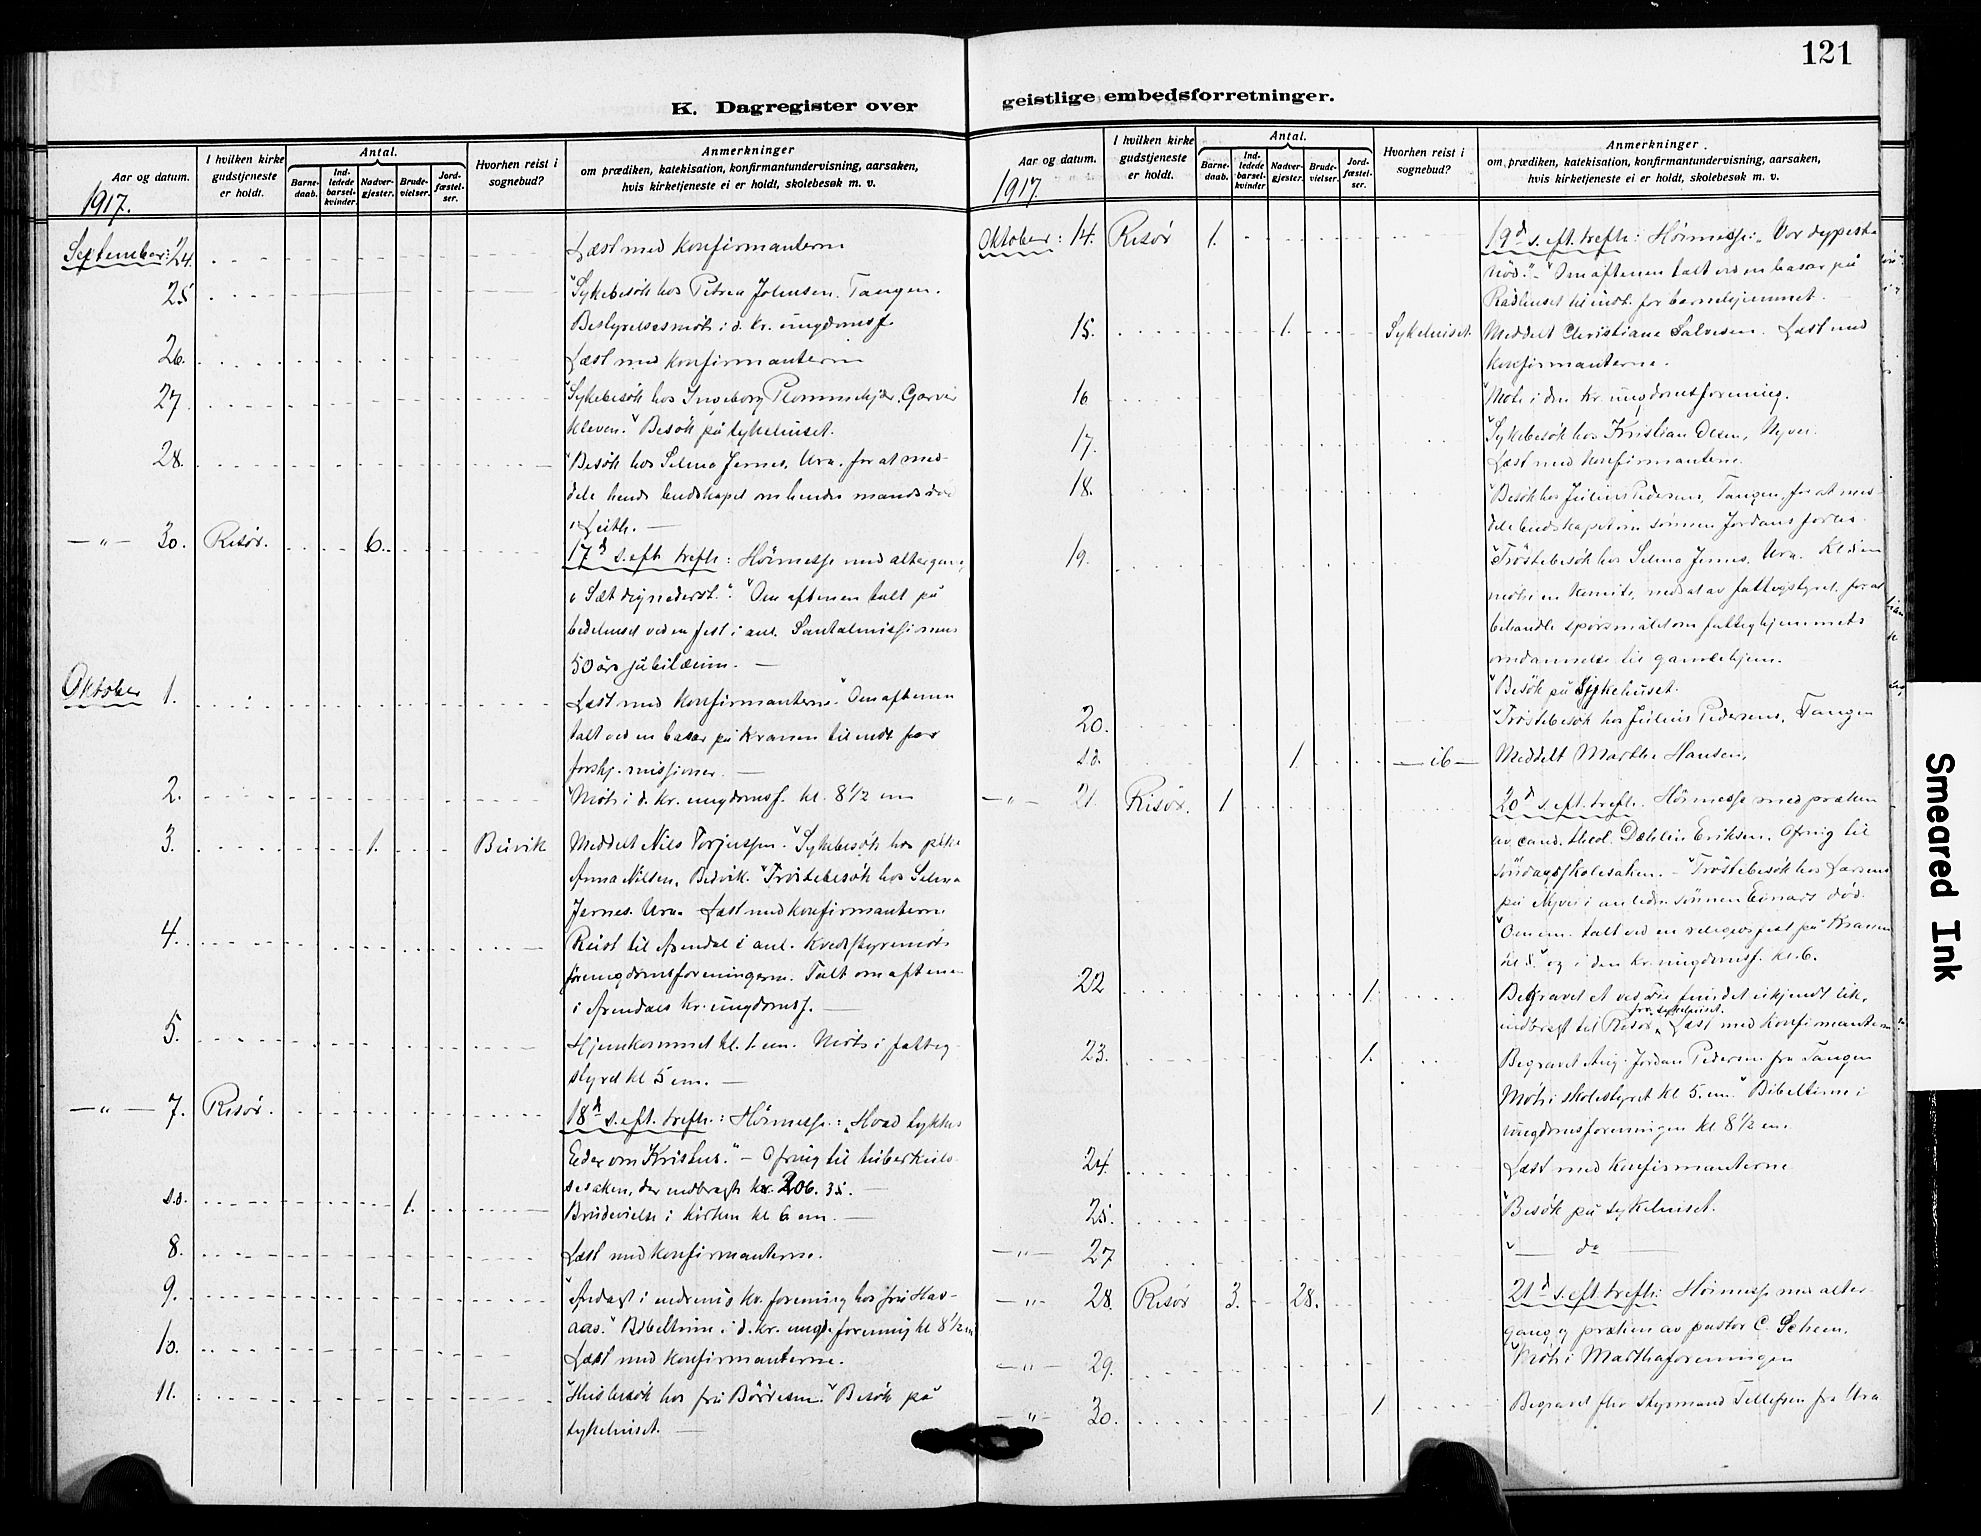 121
K. Dagregister over
geistlige embedsforretninger.
Aar og datum.
I hvilken kirke gudstjeneste er holdt.
Antal.
Barnedaab.
Indledede barselkvinder
Nadvergjester.
Brudevielser.
Jordfæstelser.
Hvorhen reist i sognebud?
Anmerkninger
om prædiken, katekisation, konfirmantundervisning, aarsaken,
hvis kirketjeneste ei er holdt, skolebesøk m. v.
1917.
September: 24. Læst med konfirmanterne
25 Sykebesök hos Petrea Johnsen. Tangen.
Bestyrelsesmöte i d. kr. ungdomsf.
26. Læst med konfirmanterne
27 Sykebesök hos Ingeborg
kleven. Besök på sykehuset.
28. Besök hos Selma Jernes, Ura. for at med-
dele hende budskapet om hendes mands död
i Leith. —
—"— 30. Risör. 6. 17d s. eft. trefh: Höimesse med altergang
Sæt dig nederst." Om aftenen talt på
bedehuset ved en fest i anl. Santalmissionens
50 års jubilæum. —
Oktober 1. Læst med konfirmanterne. Om aftenen
talt ved en basar på Kranen til indt for
forskj. missioner. —
2. Möte i d. kr. ungdomsf. kl. 8 1/2 em
3. 1. Buvik Meddelt Nils Torjussen. Sykebesök hos
Anna Nilsen, Buvik. Tröstebesök hos Selma
Jernes. Ura. Læst med konfirmanterne
4. Reist til Arendal i anl. Kredsstyremöte
for ungdomsforeningerne. Talt om aftenen
i Arendals kr. ungdomsf. —
5. Hjemkommet kl. 1. em. Möte i fattig-
styret kl 5 em. —
—"— 7. Risör. 18d s. eft. trefh.: Höimesse: „Hvad tykkes
Eder om Kristus." — Ofring til tuberkulo-
sesaken, der indbragte kr. 206.35. —
s.d. 1. Brudevielse i kirken kl 6 em. —
8. Læst med konfirmanterne.
9. Andagt i indremis kr. forening hos fru Hav-
aas. Bibeltime i d. kr. ungd. forening kl 8 1/2 em
10. Læst med konfirmanterne.
11. Husbesök hos fru Börresen. Besök på
sykehuset. —
Aar og datum.
I hvilken kirke gudstjeneste er holdt.
Antal.
Barnedaab.
Indledede barselkvinder
Nadvergjester.
Brudevielser.
Jordfæstelser.
Hvorhen reist i sognebud?
Anmerkninger.
om prædiken, katekisation, konfirmantundervisning, aarsaken,
hvis kirketjeneste ei er holdt, skolebesøk m. v.
1917.
Oktober: 14. Risör 1. 19d s. eft. trefh: Höimesse: „Vor dypeste
nöd." Om aftenen talt ved en basar på
Rådhuset til indt. for barnehjemmet. —
15. 1. Sykehuset. Meddelt Christiane Salvesen. Læst med
konfirmanterne.
16 Möte i den kr. ungdomsforening.
17. Sykebesök hos Kristian Olsen,
Læst med konfirmanterne.
18. Besök hos Julius Pedersens, Tangen, for at med-
dele budskapet om sönnen Jordans forlis.
19. Tröstebesök hos Selma Jernes, Ura. Kl. 5 em
möte i en komite, nedsat av fattigstyret for at
behandle spörsmålet om fattighjemmets
omdannelse til gamlehjem.
Besök på Sykehuset.
20. Tröstebesök hos Julius Pedersens, Tangen
s.d. 1 —ib— Meddelt Marthe Hansen.
—"— 21. Risör. 1 20d s. eft. trefh. Höimesse med præken
av cand. theol. Dæhlin Eriksen. Ofring til
söndagsskolesaken. — Tröstebesök hos Larsens
på i anledn. sönnen Einars död.
Om em. talt ved en religiös fest på Kranen
og i den kr. ungdomsf. kl. 6.
22 1 Begravet et ved fundet ukjendt lik,
indbragt til Risör, fra sykehuset. Læst med konfirmanterne
23. 1. Begravet Aug. Jordan Pedersen fra Tangen
Möte i skolestyret kl 5. em. Bibeltime i
ungdomsforeningen kl 8 1/2 em.
24. Læst med konfirmanterne
25. Besök på sykehuset.
—"— 27 — do —
—"— 28. Risör 3. 28. 21d s. eft. trefh: Höimesse med alter-
gang og præken av pastor C. Scheen.
—"— 29. Möte i Marthaforeningen
—"— 30. 1 Begravet fhv Styrmand Tellefsen fra Ura
Smeared Ink